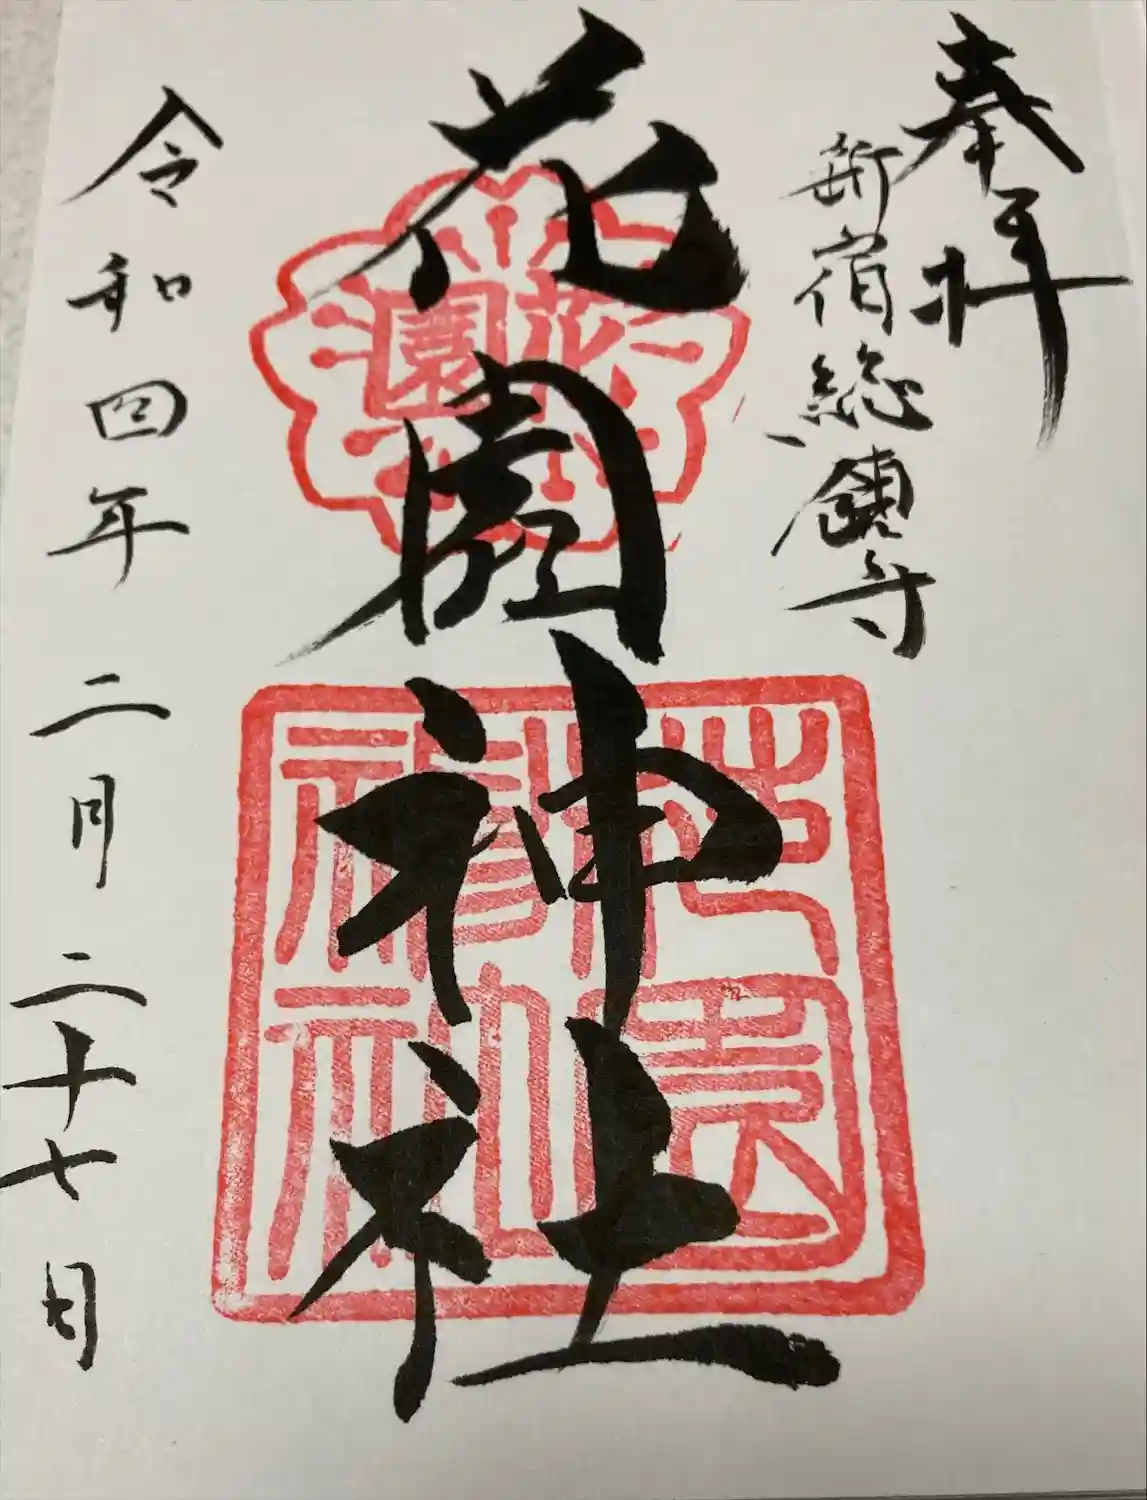 奉拝
新宿総鎮守
花園神社
花園
花園神社
令和四年二月二十七日